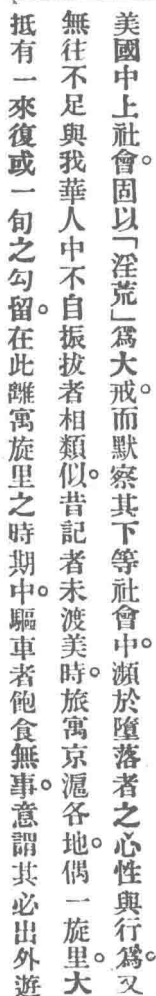 美國中上社會。固以「淫荒」爲大戒。而默察其下等社會中。瀕於墮落者之心性與行爲。又
無往不足與我華人中不自振拔者相類似。昔記者未渡美時。旅寓京滬各地。偶一旋里。大
抵有一來復或一旬之勾留。在此離寓旋里之時期中。驅車者飽食無事。意謂其必出外遊